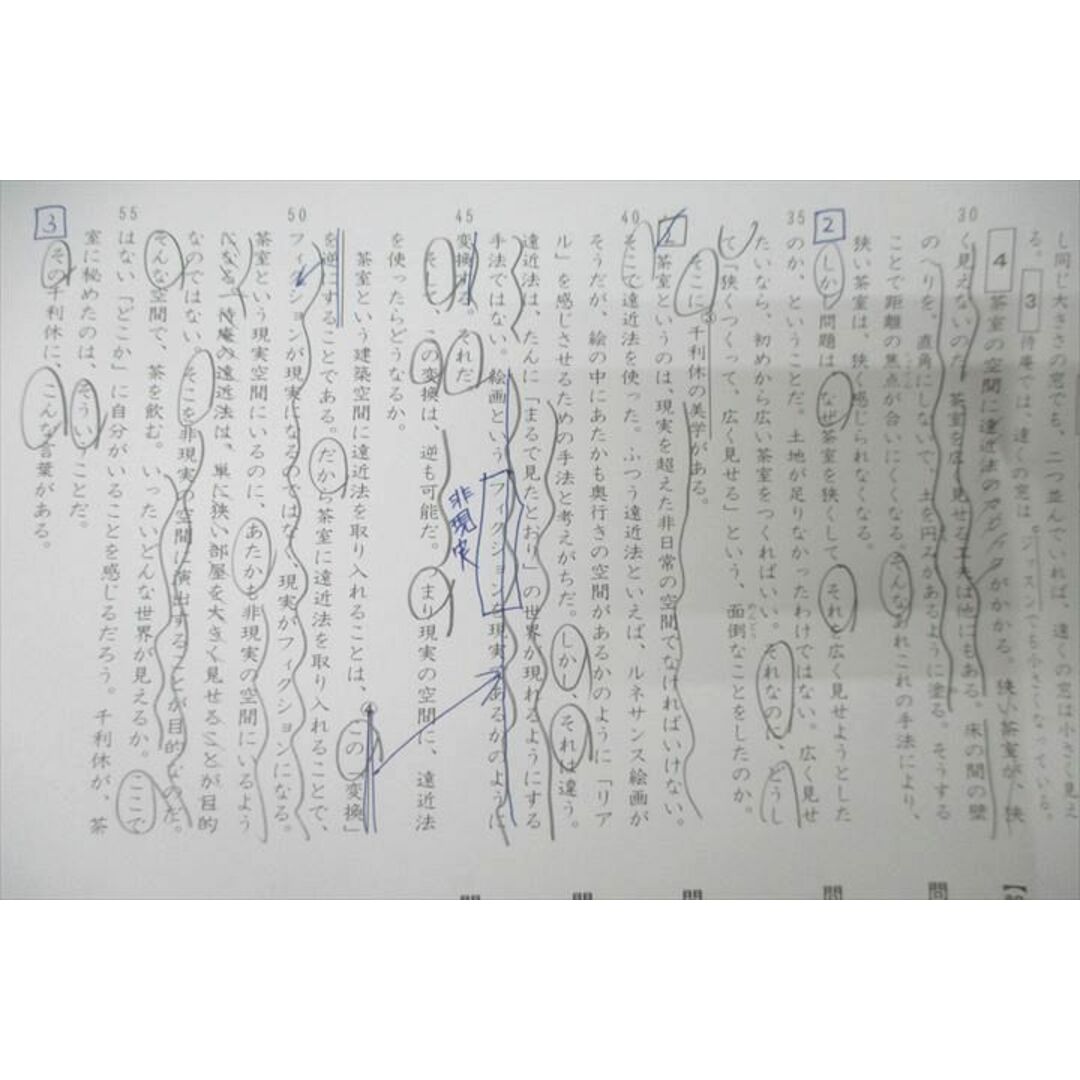 し同じ大きさの窓でも、二つ並んでいれば、遠くの窓は小さく見え
る。 3 待庵では、遠くの窓は、ジッスンでも小さくなっている。
4 茶室の空間に遠近法のマジックがかかる。狭い茶室が、狭
30
く見えないのだ。茶室を広く見せる工夫は他にもある。床の間の壁
のへりを、直角にしないで、土を円みがあるように塗る。そうする
ことで距離の焦点が合いにくくなる。そんなあれこれの手法により、
狭い茶室は、狭く感じられなくなる。
2 しかし問題は、なぜ茶室を狭くして、それを広く見せようとした
35
のか、ということだ。土地が足りなかったわけではない。広く見せ
たいなら、初めから広い茶室をつくればいい。それなのに、どうし
て「狭くつくって、広く見せる」という、面倒なことをしたのか。
めんどう
そこに③千利休の美学がある。
茶室というのは、現実を超えた非日常の空間でなければいけない。
40
そこで遠近法を使った。ふつう遠近法といえば、ルネサンス絵画が
そうだが、絵の中にあたかも奥行きの空間があるかのように「リア
ル」を感じさせるための手法と考えがちだ。しかし、それは違う。
遠近法は、たんに「まるで見たとおり」の世界が現れるようにする
手法ではない。絵画というフィクションを現実であるかのように
非現実
45
変換する。それだ。
そして、この変換は、逆も可能だ。つまり現実の空間に、遠近法
を使ったらどうなるか。
茶室という建築空間に遠近法を取り入れることは、④この「変換」
を逆にすることである。だから茶室に遠近法を取り入れることで、
50
フィクションが現実になるのではなく、現実がフィクションになる。
茶室という現実空間にいるのに、あたかも非現実の空間にいるよう
になる。待庵の遠近法は、単に狭い部屋を大きく見せることが目的
なのではない。そこを非現実の空間に演出することが目的なのだ。
そんな空間で、茶を飲む。いったいどんな世界が見えるか。ここで
55
はない「どこか」に自分がいることを感じるだろう。千利休が、茶
室に秘めたのは、そういうことだ。
3 その千利休に、こんな言葉がある。
問
問
問
問
問